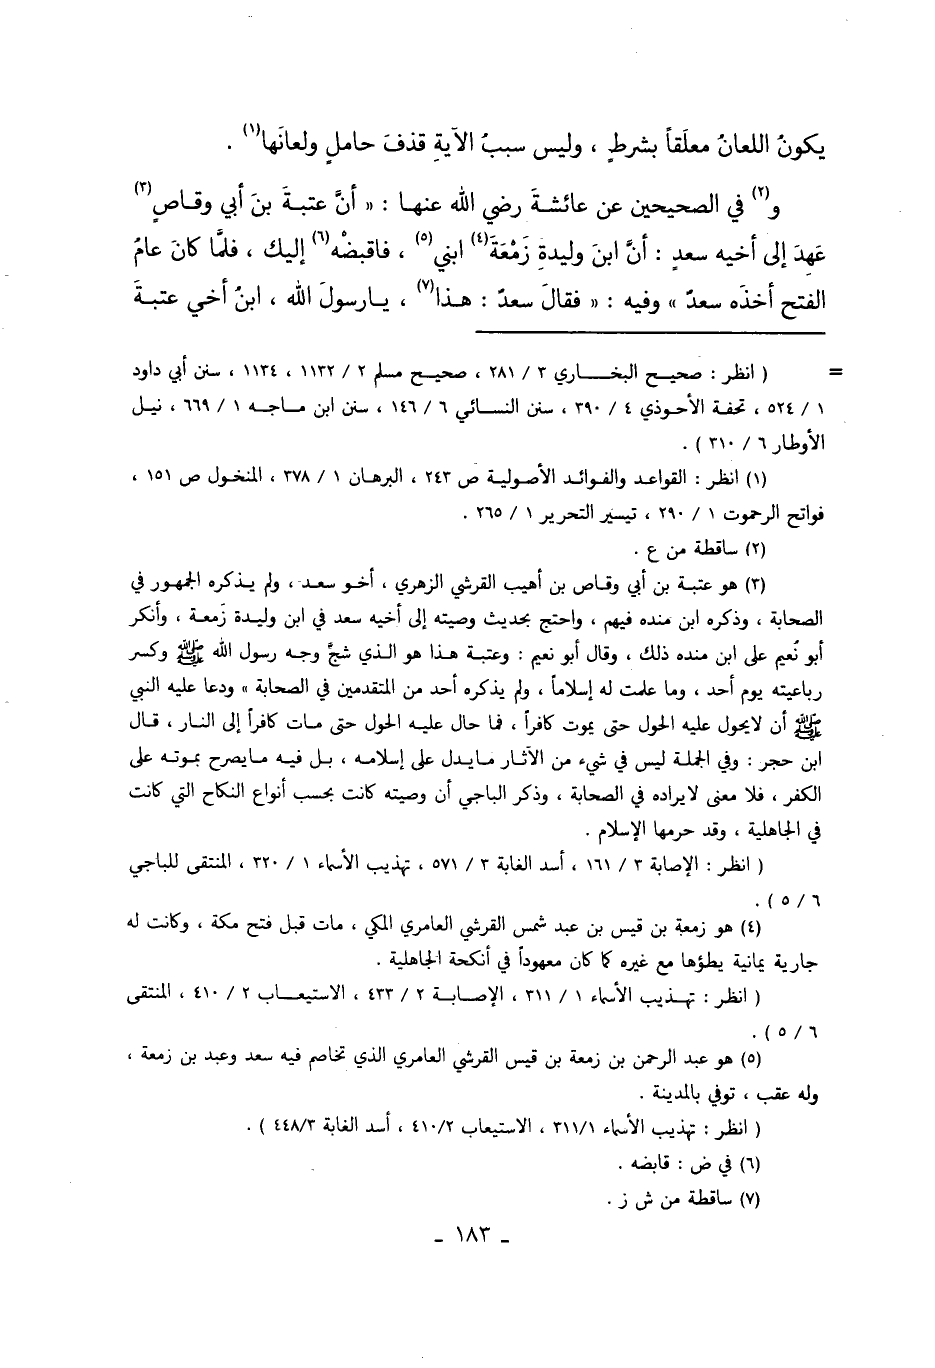 يكونُ اللعانُ معلَقاً بشرطٍ ، وليس سببُ الآيةِ قذفَ حاملٍ ولعانَها(١) .
و(٢) في الصحيحين عن عائشةَ رضي الله عنها : « أنَّ عتبةَ بنَ أبي وقاصٍ(٣)
عَهِدَ إلى أخيه سعدٍ : أنَّ ابنَ وليدةِ زَمْعَةَ(٤) ابني(٥) ، فاقبضْه(٦) إليك ، فلمَّا كانَ عامُ
الفتح أخذَه سعدٌ » وفيه : « فقالَ سعدٌ : هذا(٧) ، يارسولَ الله ، ابنُ أخي عتبةَ
= ( انظر : صحيح البخاري ٣ / ٢٨١ ، صحيح مسلم ٢ / ١١٣٢ ، ١١٣٤ ، سنن أبي داود
١ / ٥٢٤ ، تحفة الأحوذي ٤ / ٣٩٠ ، سنن النسائي ٦ / ١٤٦ ، سنن ابن ماجه ١ / ٦٦٩ ، نيل
الأوطار ٦ / ٣١٠ ) .
(١) انظر : القواعد والفوائد الأصولية ص ٢٤٣ ، البرهان ١ / ٣٧٨ ، المنخول ص ١٥١ ،
فواتح الرحموت ١ / ٢٩٠ ، تيسير التحرير ١ / ٢٦٥ .
(٢) ساقطة من ع .
(٣) هو عتبة بن أبي وقاص بن أهيب القرشي الزهري ، أخو سعد ، ولم يذكره الجمهور في
الصحابة ، وذكره ابن منده فيهم ، واحتج بحديث وصيته إلى أخيه سعد في ابن وليدة زَمعة ، وأنكر
أبو نُعيم على ابن منده ذلك ، وقال أبو نعيم : وعتبة هذا هو الذي شجَّ وجه رسول الله ﷺ وكسر
رباعيته يوم أحد ، وما علمت له إسلاماً ، ولم يذكره أحد من المتقدمين في الصحابة » ودعا عليه النبي
ﷺ أن لايحول عليه الحول حتى يموت كافراً ، فما حال عليه الحول حتى مات كافراً إلى النار ، قال
ابن حجر : وفي الجملة ليس في شيء من الآثار مايدل على إسلامه ، بل فيه مايصرح بموته على
الكفر ، فلا معنى لايراده في الصحابة ، وذكر الباجي أن وصيته كانت بحسب أنواع النكاح التي كانت
في الجاهلية ، وقد حرمها الإسلام .
( انظر : الإصابة ٣ / ١٦١ ، أسد الغابة ٣ / ٥٧١ ، تهذيب الأسماء ١ / ٣٢٠ ، المنتقى للباجي
٦ / ٥ ) .
(٤) هو زمعة بن قيس بن عبد شمس القرشي العامري المكي ، مات قبل فتح مكة ، وكانت له
جارية يمانية يطؤها مع غيره كما كان معهوداً في أنكحة الجاهلية .
( انظر : تهذيب الأسماء ١ / ٣١١ ، الإصابة ٢ / ٤٣٣ ، الاستيعاب ٢ / ٤١٠ ، المنتقى
٦ / ٥ ) .
(٥) هو عبد الرحمن بن زمعة بن قيس القرشي العامري الذي تخاصم فيه سعد وعبد بن زمعة ،
وله عقب ، توفي بالمدينة .
( انظر : تهذيب الأسماء ٣١١/١ ، الاستيعاب ٤١٠/٢ ، أسد الغابة ٤٤٨/٣ ) .
(٦) في ض : قابضه .
(٧) ساقطة من ش ز .
- ١٨٣ -